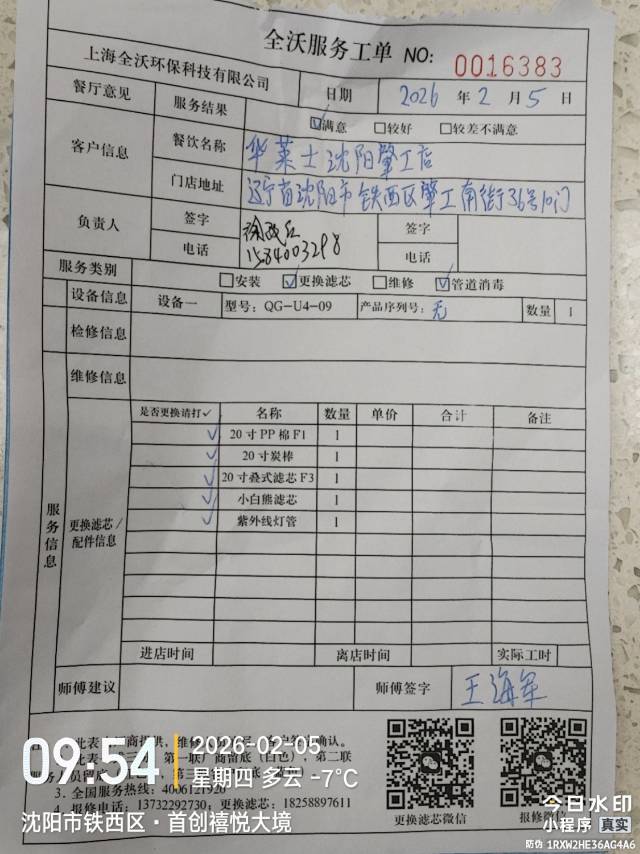 全沃服务工单 NO: 0016383
上海全沃环保科技有限公司 日期 2026 年 2 月 5 日
餐厅意见 服务结果 ☑满意 □较好 □较差不满意
客户信息 餐饮名称 华莱士沈阳肇工店
门店地址 辽宁省沈阳市铁西区肇工南街36号10门
负责人 签字 签字
电话 1584003298 电话
服务类别 □安装 ☑更换滤芯 □维修 ☑管道消毒
服务信息
设备信息 设备一 型号: QG-U4-09 产品序列号: 无 数量 1
检修信息
维修信息
更换滤芯/配件信息
是否更换请打✓ 名称 数量 单价 合计 备注
✓ 20寸PP棉F1 1
✓ 20寸炭棒 1
✓ 20寸叠式滤芯F3 1
✓ 小白熊滤芯 1
✓ 紫外线灯管 1
进店时间 离店时间 实际工时
师傅建议 师傅签字 王海军
3. 全国服务热线: 4006121920
4. 报修电话: 13732292730, 更换滤芯: 18258897611
更换滤芯微信 报修微信
09:54
2026-02-05
星期四 多云 -7℃
沈阳市铁西区·首创禧悦大境
今日水印
小程序 真实
防伪 1RXW2HE36AG4A6